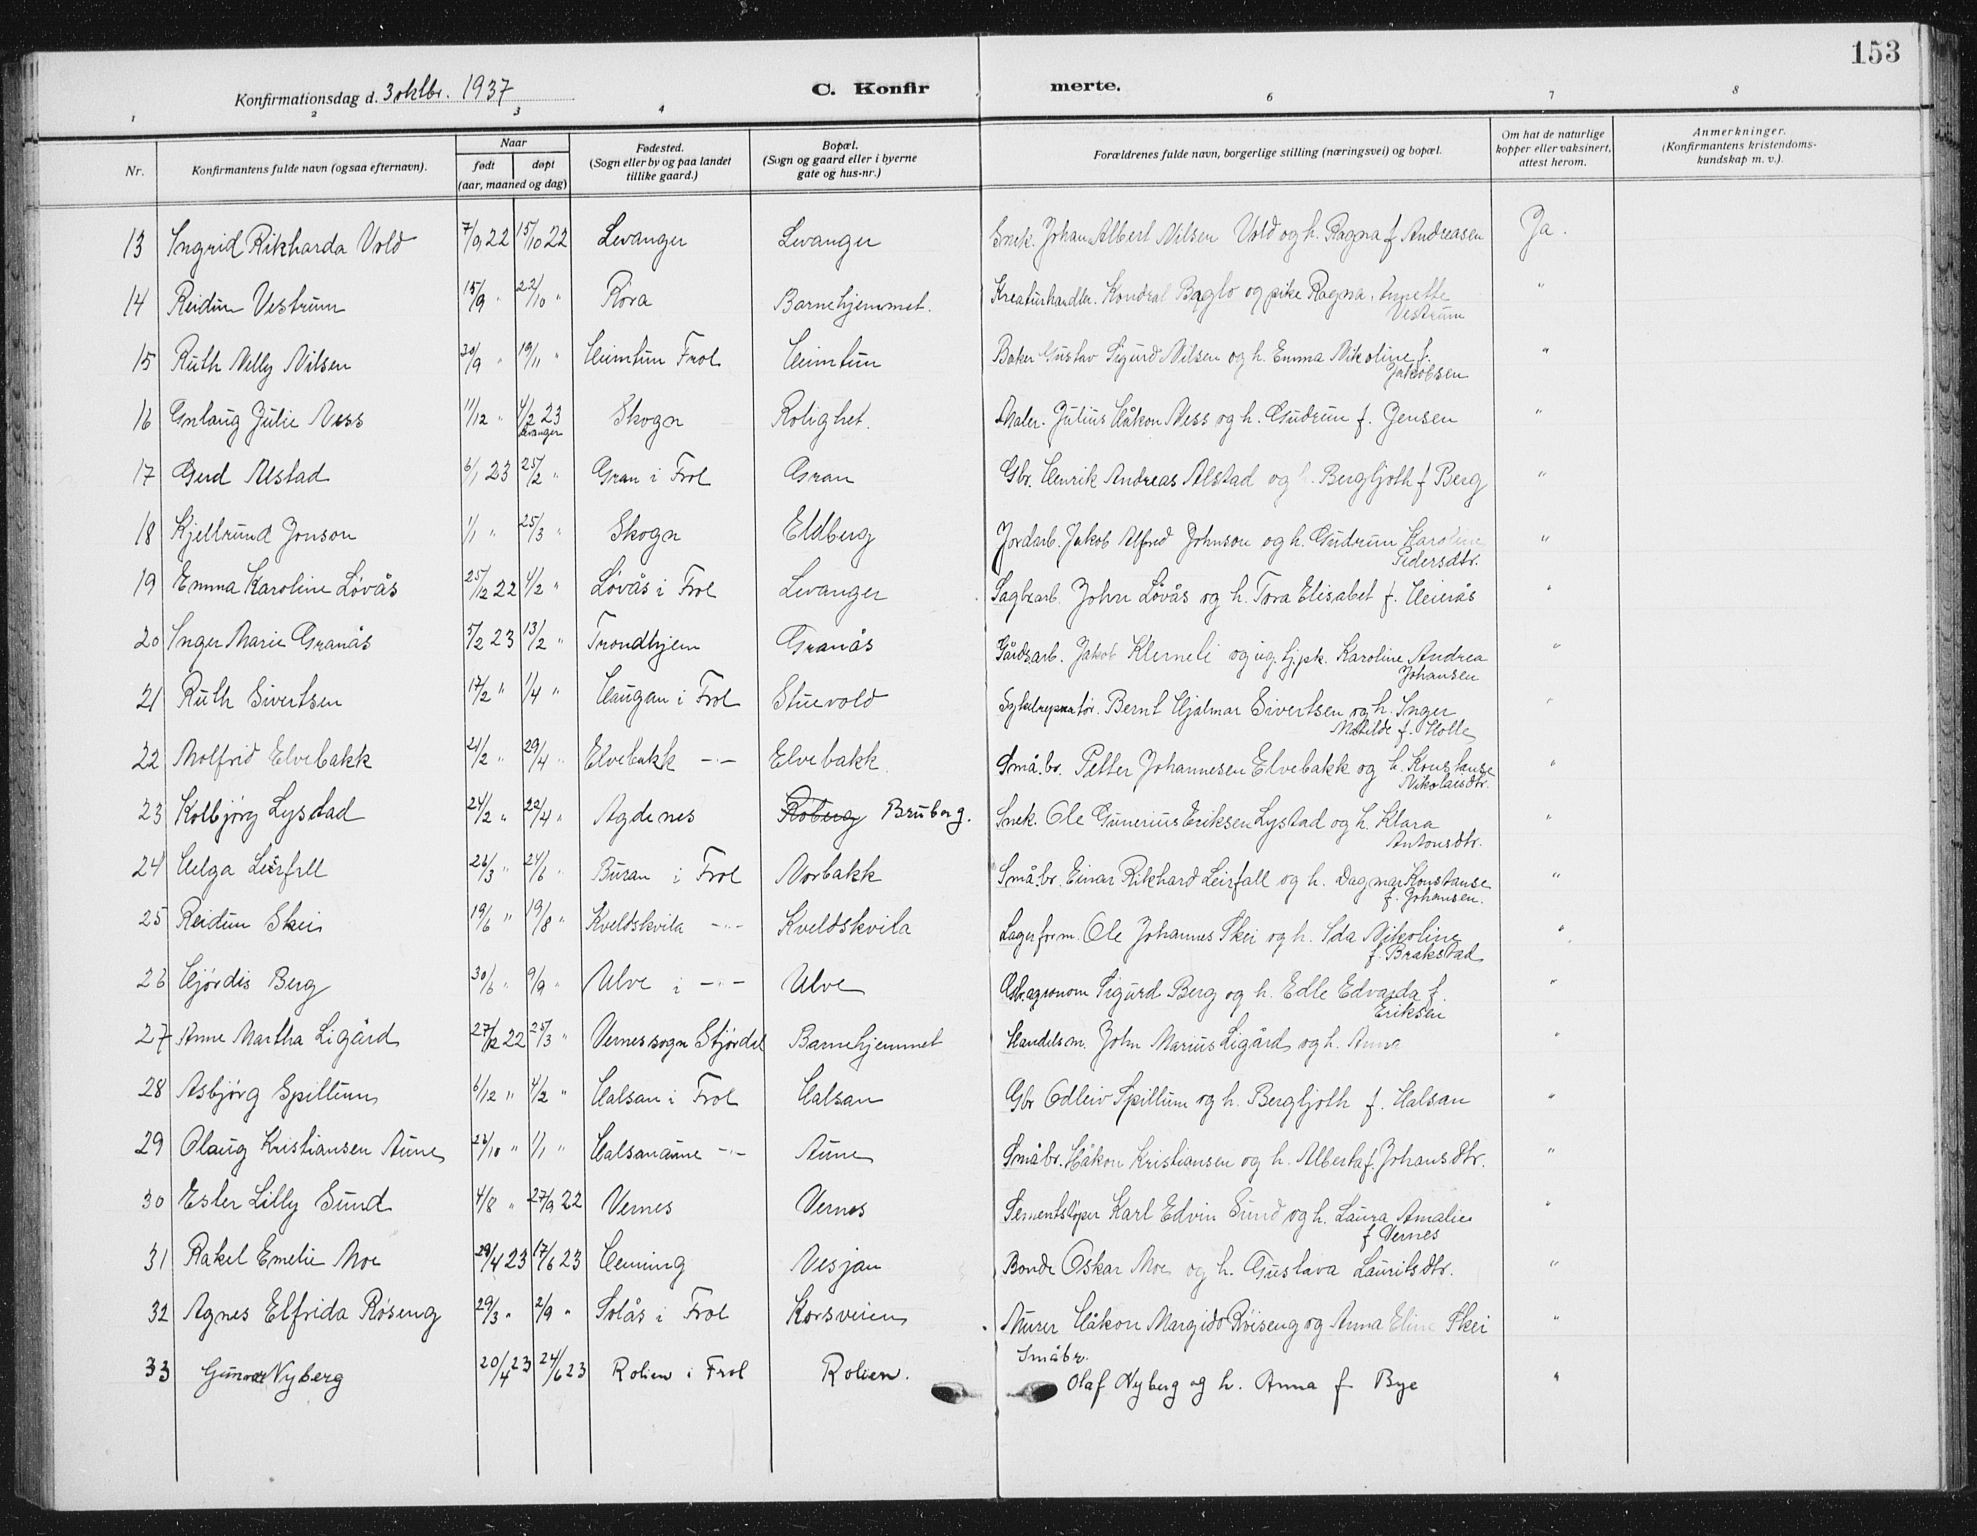 153
Konfirmationsdag d. 3 oktbr. 1937
C. Konfir merte.
1 2 3 4 6 7 8
Nr. Konfirmantens fulde navn (ogsaa efternavn). Naar født døpt (aar, maaned og dag) Fødested. (Sogn eller by og paa landet tillike gaard.) Bopæl. (Sogn og gaard eller i byerne gate og hus-nr.) Forældrenes fulde navn, borgerlige stilling (næringsvei) og bopæl. Om hat de naturlige kopper eller vaksinert, attest herom. Anmerkninger. (Konfirmantens kristendoms-kundskap m. v.).
13 Ingrid Rikharda Vold 7/9 22 15/10 22 Levanger Levanger Snek. Johan Albert Nilsen Vold og h. Ragna f. Andreasen Ja.
14 Reidun Vestrum 15/9 " 22/10 " Röra Barnehjemmet. Kreaturhandler. Kondral Baglo og pike Ragna Annette Vestrum "
15 Ruth Nelly Nilsen 30/9 " 19/11 " Heimtun Frol Heimtun Baker Gustav Sigurd Nilsen og h. Emma Nikoline f. Jakobsen "
16 Gnlaug Julie Ness 11/12 " 4/2 23 Levanger Skogn Rolighet. Maler. Julius Håkon Ness og h. Gudrun f. Jensen "
17 Gerd Alstad 6/1 23 25/2 " Gran i Frol Gran Gbr. Henrik Andreas Alstad og h. Bergljoth f Berg "
18 Kjellrund Jonson 1/1 " 25/3 " Skogn Eldberg Jordarb. Jakob Alfred Johnson og h. Gudrun Karoline Pedersdtr. "
19 Emma Karoline Løvås 25/12 22 4/2 " Løvås i Frol Levanger Sagbrarb. John Løvås og h. Tora Elisabet f. Heierås "
20 Inger Marie Granås 5/2 23 13/2 " Trondhjem Granås Gårdsarb. Jakob Klemeli og ug. tjpk. Karoline Andrea Johansen "
21 Ruth Sivertsen 17/2 " 1/4 " Haugan i Frol Stuevold Sykelreparatør. Bernt Hjalmar Sivertsen og h. Inger Matilde f. Holle "
22 Molfrid Elvebakk 21/2 " 29/4 " Elvebakk -"- Elvebakk Små.br. Petter Johannesen Elvebakk og h. Konstanse Nikolaisdtr. "
23 Kolbjørg Lystad 24/2 " 22/4 " Agdenes Röberg Bruborg. Snek. Ole Gunerius Eriksen Lystad og h. Klara Antonsdtr. "
24 Helga Leirfall 26/3 " 24/6 " Buran i Frol Norbakk Små.br. Einar Rikhard Leirfall og h. Dagmar Konstanse f. Johansen. "
25 Reidun Skei 19/6 " 19/8 " Kveldskvila -"- Kveldskvila Lagerform. Ole Johannes Skei og h. Ida Nikoline f. Brakstad "
26 Hjørdis Berg 30/6 " 9/9 " Ulve i -"- Ulve Gbr. agronom Sigurd Berg og h. Edle Edvarda f. Eriksen "
27 Anne Martha Ligård 27/12 22 25/3 " Vernes sogn Stjørdal Barnehjemmet Handelsm. John Marius Ligård og h. Anna "
28 Asbjørg Spillum 6/12 " 4/2 " Halsan i Frol Halsan Gbr Odleiv Spillum og h. Bergljoth f. Halsan "
29 Olaug Kristiansen Aune 26/10 " 1/1 " Halsanaune -"- Aune Småbr. Håkon Kristiansen og h. Alberta f. Johansdtr. "
30 Ester Lilly Sund 4/8 " 27/9 22 Vernes Vernes Sementstøper Karl Edvin Sund og h. Laura Amalie f Vernes "
31 Rakel Emelie Moe 29/4 23 17/6 23 Henning Nesjan Bonde Oskar Moe og h. Gustava Lauritsdtr. "
32 Agnes Elfrida Røseng 29/3 " 2/9 " Solås i Frol Korsveien Murer Håkon Margido Röiseng og Anna Eline Skei "
33 Gunvor Nyberg 20/4 23 24/6 23 Rolien i Frol Rolien. Småbr. Olaf Nyberg og h. Anna f Bye "